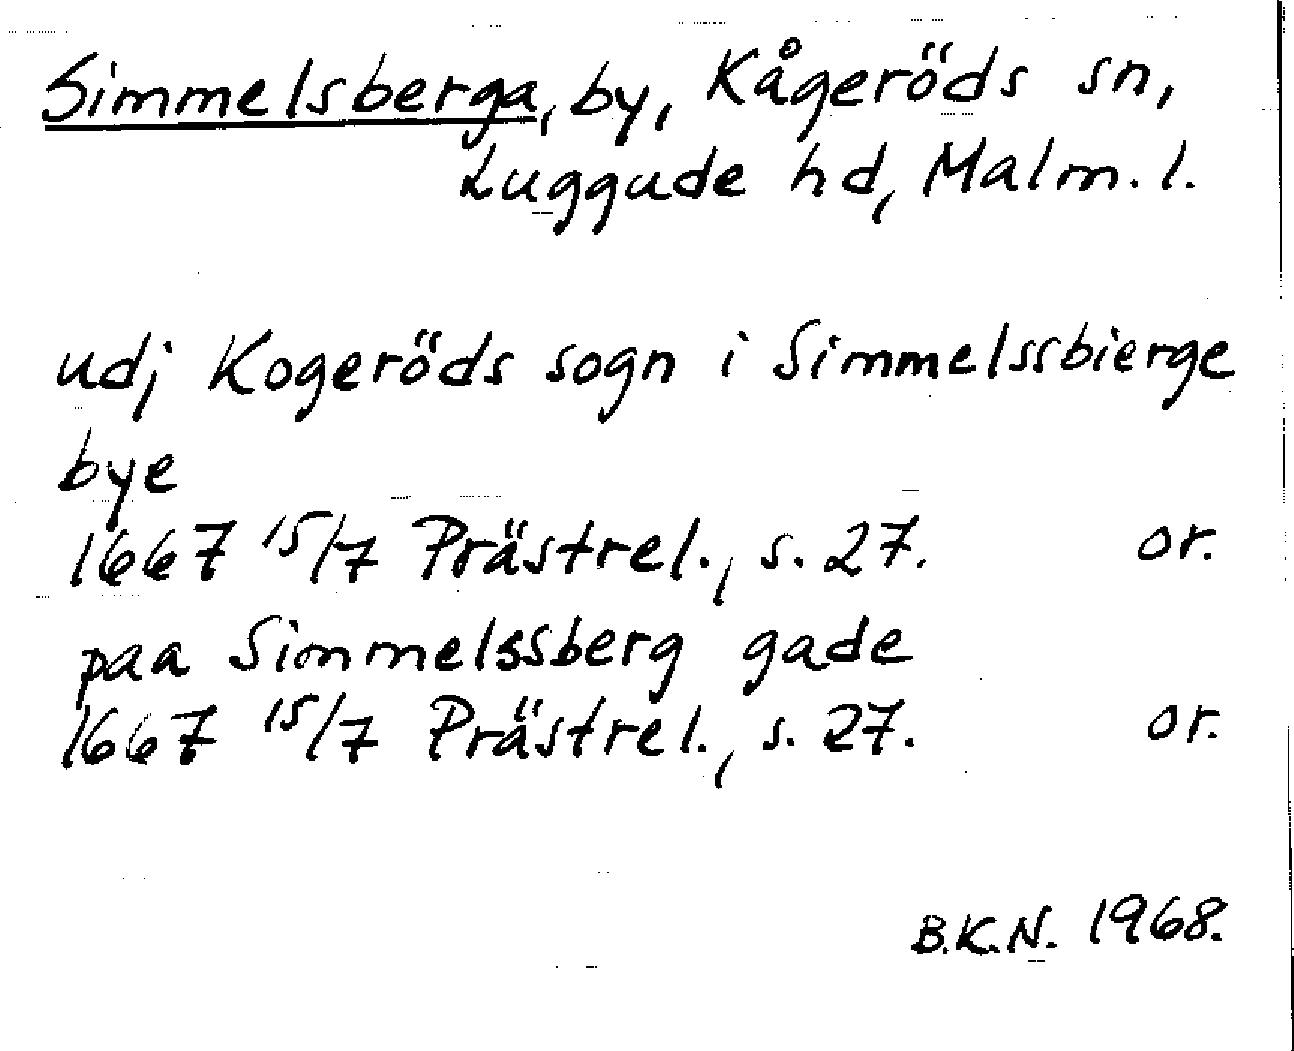 Simmelsberga, by, Kågeröds sn,
Luggude hd, Malm. l.
udj Kogeröds sogn i Simmelssbierge
bye
1667 15/7 Prästrel., s. 27. or.
paa Simmelssberg gade
1667 15/7 Prästrel., s. 27. or.
B.K.N. 1968.